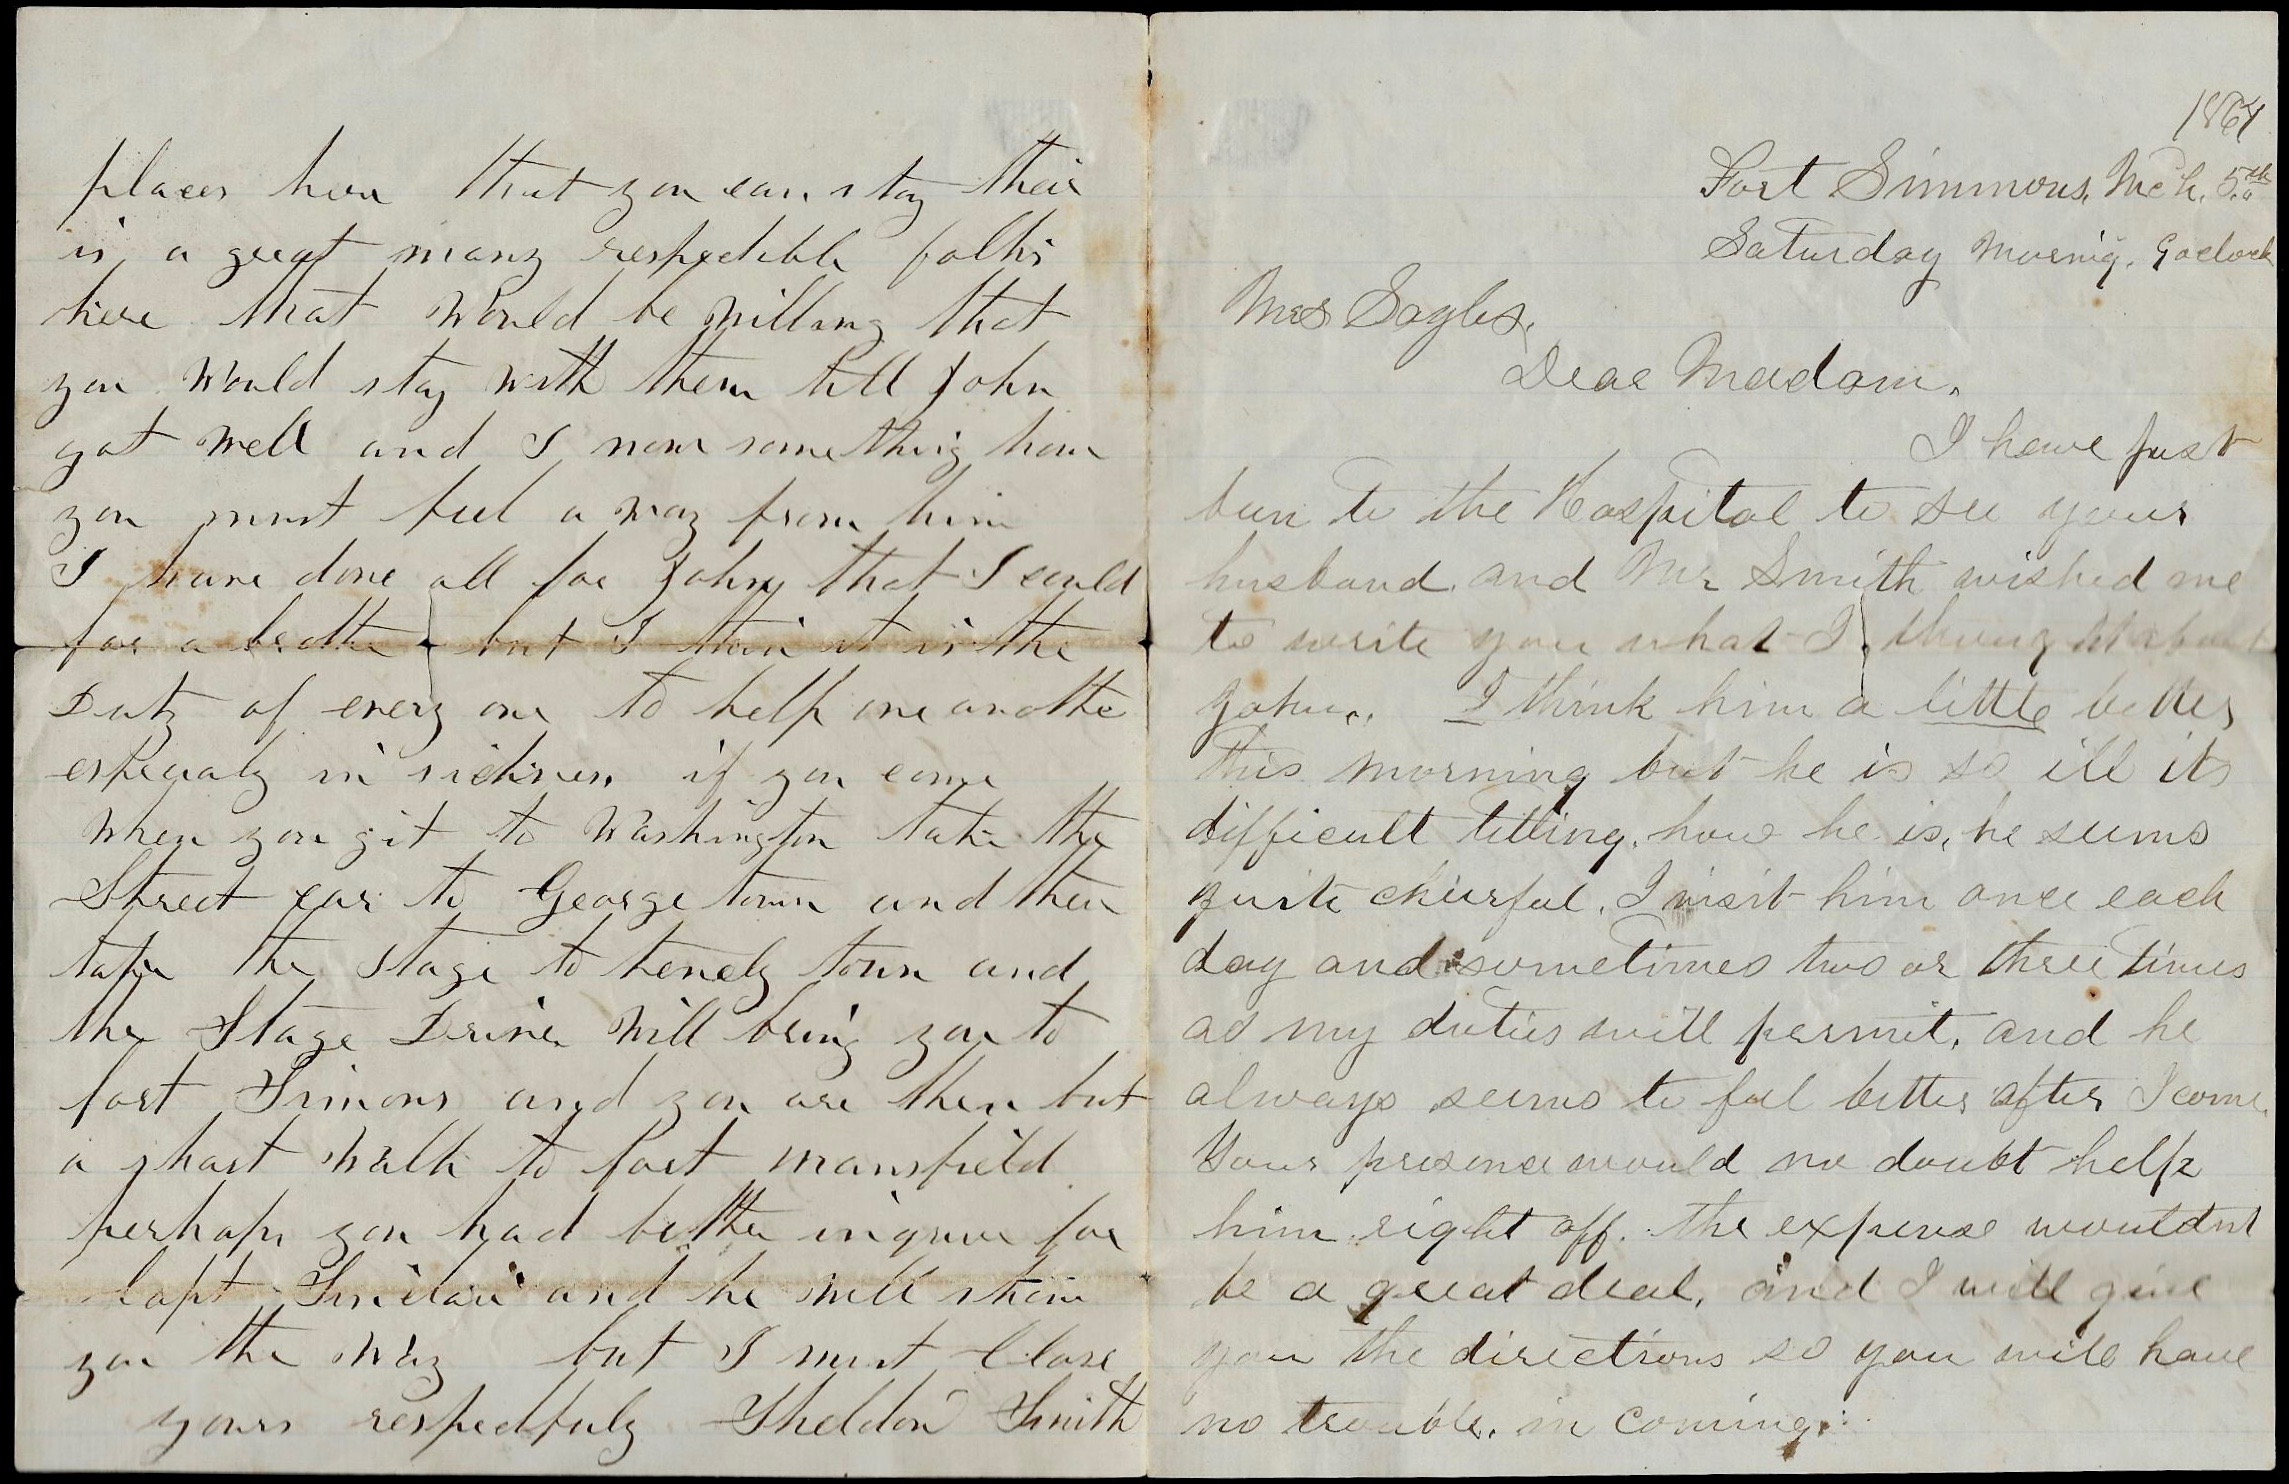 1864
Fort Simmons, Mch. 5th
Saturday Mornig. 9 oclock
Mrs Sayles,
Dear Madam,
I have just
been to the Hospital to see your
husband and Mr Smith wished me
to write you what I thought about
John. I think him a little better
this morning but he is so ill its
difficult telling, how he is, he seems
quite cheerful, I visit him once each
day and sometimes two or three times
as my duties will permit, and he
always seems to feel better after I come.
Your presence would no doubt help
him right off. the expense wouldnt
be a great deal, and I will give
you the directions so you will have
no trouble, in coming.
places here that you can stay their
is a great many respectible folks
here that would be willing that
you would stay with them till John
got well and I now something how
you must feel a way from him
I have done all for Johny that I could
for a brother but I thin it is the
Duty of every one to help one anothe
espicaly in sickness if you come
when you git to Washington take the
Street car to George town and then
take the stage to tenely town and
the Stage Driver will bring you to
fort Simons and you are then but
a short walk to fort mansfield
perhaps you had better inquire for
Capt Sinclair and he will show
you the way but I must Close
yours respectfuly Sheldon Smith